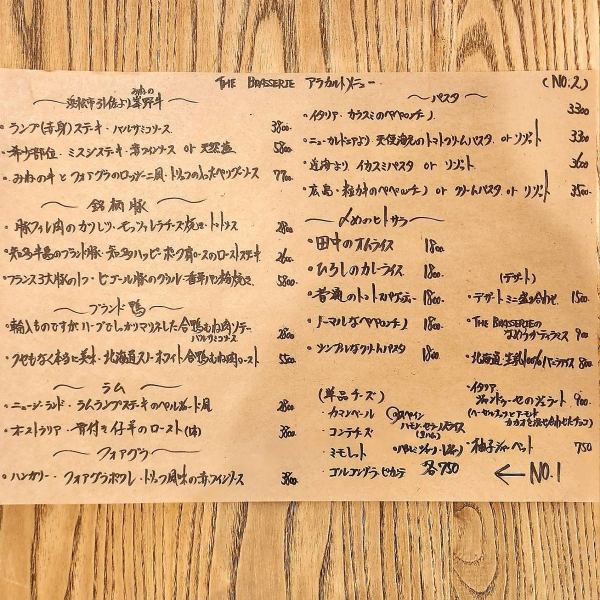 THE BRASSERIE アラカルトメニュー (NO.2)
〜浜松市引佐より峯野牛〜
みねの
・ランプ(赤身)ステーキ・バルサミコソース 3800.
・希少部位・ミスジステーキ・赤ワインソース or 天然塩 5800.
・みねの牛とフォアグラのロッシーニ風・トリュフの入ったペリグーソース 7700.
〜銘柄豚〜
・豚フィレ肉のカツレツ・モッツァレラチーズ焼き・トマトソース 2800.
・知多半島のブランド豚・知多ハッピーポーク肩ロースのローストステーキ 2600.
・フランス3大豚の1つ・ビゴール豚のグリル・香草パン粉焼き 5800.
〜ブランド鴨〜
・輸入ものですがハーブでしっかりマリネした合鴨むね肉ソテー 2800.
バルサミコソース
・クセもなく本当に美味・北海道スノーホワイト合鴨むね肉ロースト 5500.
〜ラム〜
・ニュージーランド・ラムランプステーキのペルシャード風 2800.
・オーストラリア・骨付き仔羊のロースト(2本) 3800.
〜フォアグラ〜
・ハンガリー・フォアグラポワレ・トリュフ風味の赤ワインソース 3800.
〜パスタ〜
・イタリア・カラスミのペペロンチーノ 3300
・ニューカレドニアより天使海老のトマトクリームパスタ or リゾット 3300
・近海より イカスミパスタ or リゾット 3600
・広島・粒カキのペペロンチーノ or クリームパスタ or リゾット 3500.
〜〆めのヒトサラ〜
・田中のオムライス 1800.
・ひろしのカレーライス 1800.
・普通のトマトスパゲッティー 1800.
・ノーマルなペペロンチーノ 1800.
・シンプルなクリームパスタ 1800.
(単品チーズ)
・カマンベール
・コンテチーズ
・ミモレット
・ゴルゴンゾーラ・ピカンテ
・スペイン
ハモン・セラーノスライス
(生ハム)
・パルミジャーノ・レジャーノ
各750
(デザート)
・デザートミニ盛り合わせ 1500.
・THE BRASSERIEの
なめらかティラミス 900.
・北海道生乳100%バニラアイス 800.
・イタリア
ジャンドゥーヤのジェラート 900.
(ヘーゼルナッツとアーモンド
カカオを混ぜ合わせたチョコ)
・柚子シャーベット 750
← NO.1